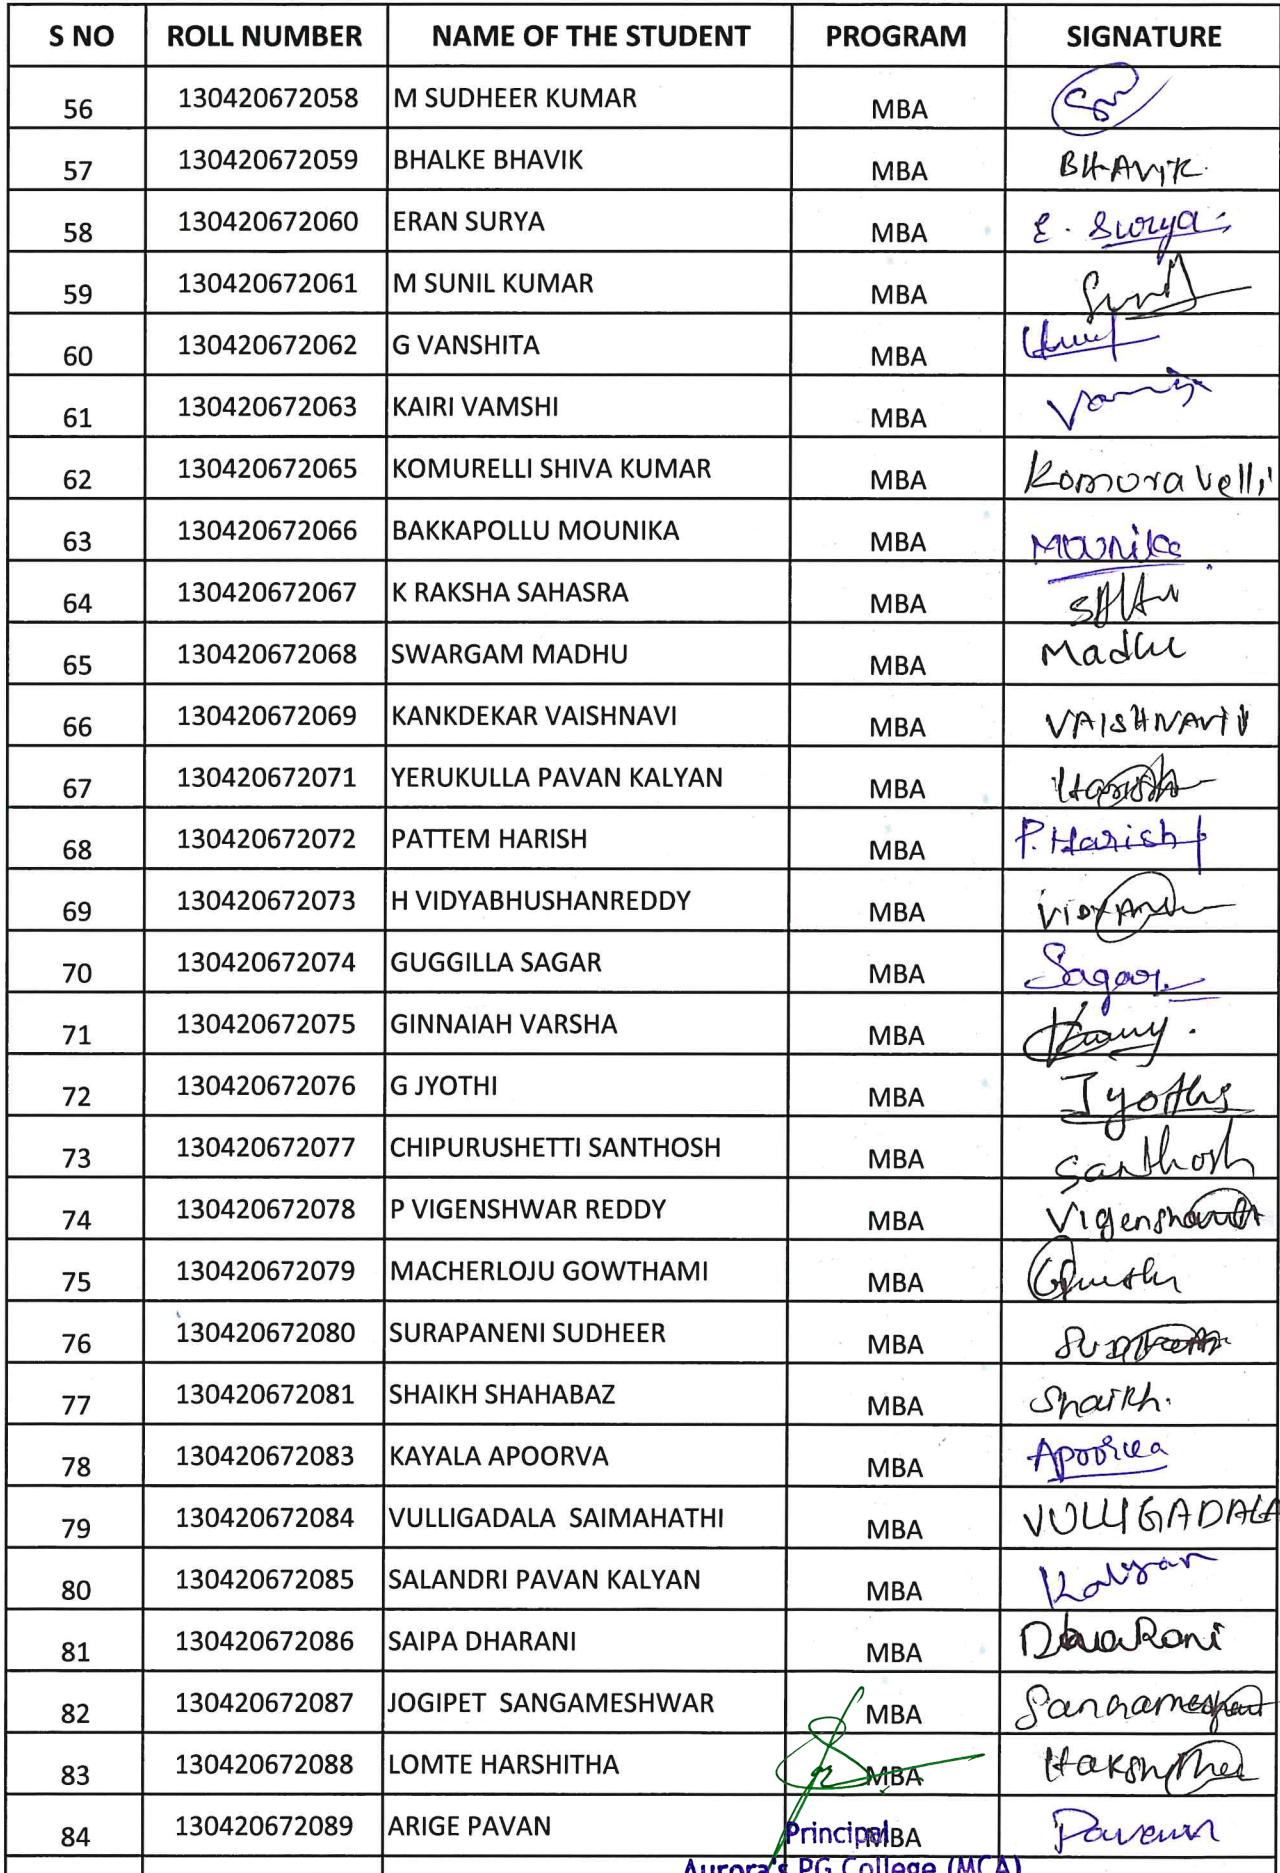 S NO ROLL NUMBER NAME OF THE STUDENT PROGRAM SIGNATURE
56 130420672058 M SUDHEER KUMAR MBA
57 130420672059 BHALKE BHAVIK MBA BHAVIK.
58 130420672060 ERAN SURYA MBA E. Surya
59 130420672061 M SUNIL KUMAR MBA Sunil
60 130420672062 G VANSHITA MBA
61 130420672063 KAIRI VAMSHI MBA
62 130420672065 KOMURELLI SHIVA KUMAR MBA Komuravelli
63 130420672066 BAKKAPOLLU MOUNIKA MBA Mounika
64 130420672067 K RAKSHA SAHASRA MBA
65 130420672068 SWARGAM MADHU MBA Madhu
66 130420672069 KANKDEKAR VAISHNAVI MBA VAISHNAVI
67 130420672071 YERUKULLA PAVAN KALYAN MBA Harish
68 130420672072 PATTEM HARISH MBA P. Harish
69 130420672073 H VIDYABHUSHANREDDY MBA
70 130420672074 GUGGILLA SAGAR MBA Sagar
71 130420672075 GINNAIAH VARSHA MBA
72 130420672076 G JYOTHI MBA Jyothi
73 130420672077 CHIPURUSHETTI SANTHOSH MBA Santhosh
74 130420672078 P VIGENSHWAR REDDY MBA
75 130420672079 MACHERLOJU GOWTHAMI MBA
76 130420672080 SURAPANENI SUDHEER MBA
77 130420672081 SHAIKH SHAHABAZ MBA Shaikh.
78 130420672083 KAYALA APOORVA MBA Apoorva
79 130420672084 VULLIGADALA SAIMAHATHI MBA VULLIGADALA
80 130420672085 SALANDRI PAVAN KALYAN MBA Kalyan
81 130420672086 SAIPA DHARANI MBA
82 130420672087 JOGIPET SANGAMESHWAR MBA
83 130420672088 LOMTE HARSHITHA MBA
84 130420672089 ARIGE PAVAN MBA Pavan
Principal
Aurora's PG College (MCA)